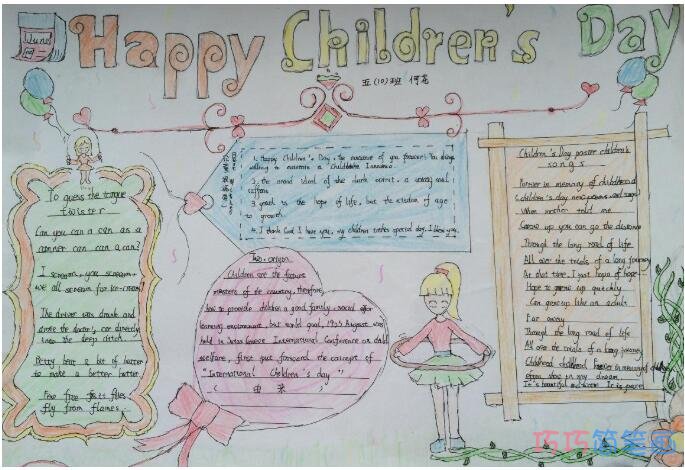 June
Happy Children's Day
五(10)班 何花
To guess the tongue
twister
Can you can a can as a
canner can can a can?
I scream, you scream,
we all scream for ice-cream!
The driver was drunk and
drove the doctor's car directly
into the deep ditch.
Betty beat a bit of butter
to make a better batter
Two five flies
fly from flames.
1. Happy Children's Day, the innocence of you forever! You always
2. the
3. youth is the hope of life, but the wisdom of age
to growth.
4. I thank God I have you, my children wishes special day, I love you.
The origin
Children are the future
masters of the country, therefore,
how to provide children a good family, social and
learning environment, but world goal, 1925 August was
held in Swiss Geneve International Conference on child
welfare, first put forward the concept of
"International Children's day"
(由来)
Children's Day poster children's
songs
Forever in memory of childhood
Children's day new poems and songs
When mother told me
Grow up you can go the distance
Through the long road of life
All over the trials of a long journey
At that time, I just hope of hope
Hope to grow up quickly
Can grow up like an adult
Far away
Through the long road of life
All over the trials of a long journey
Childhood childhood, forever in memory of childhood
often show in my dream
It's beautiful and warm. It is peace
巧巧简笔画